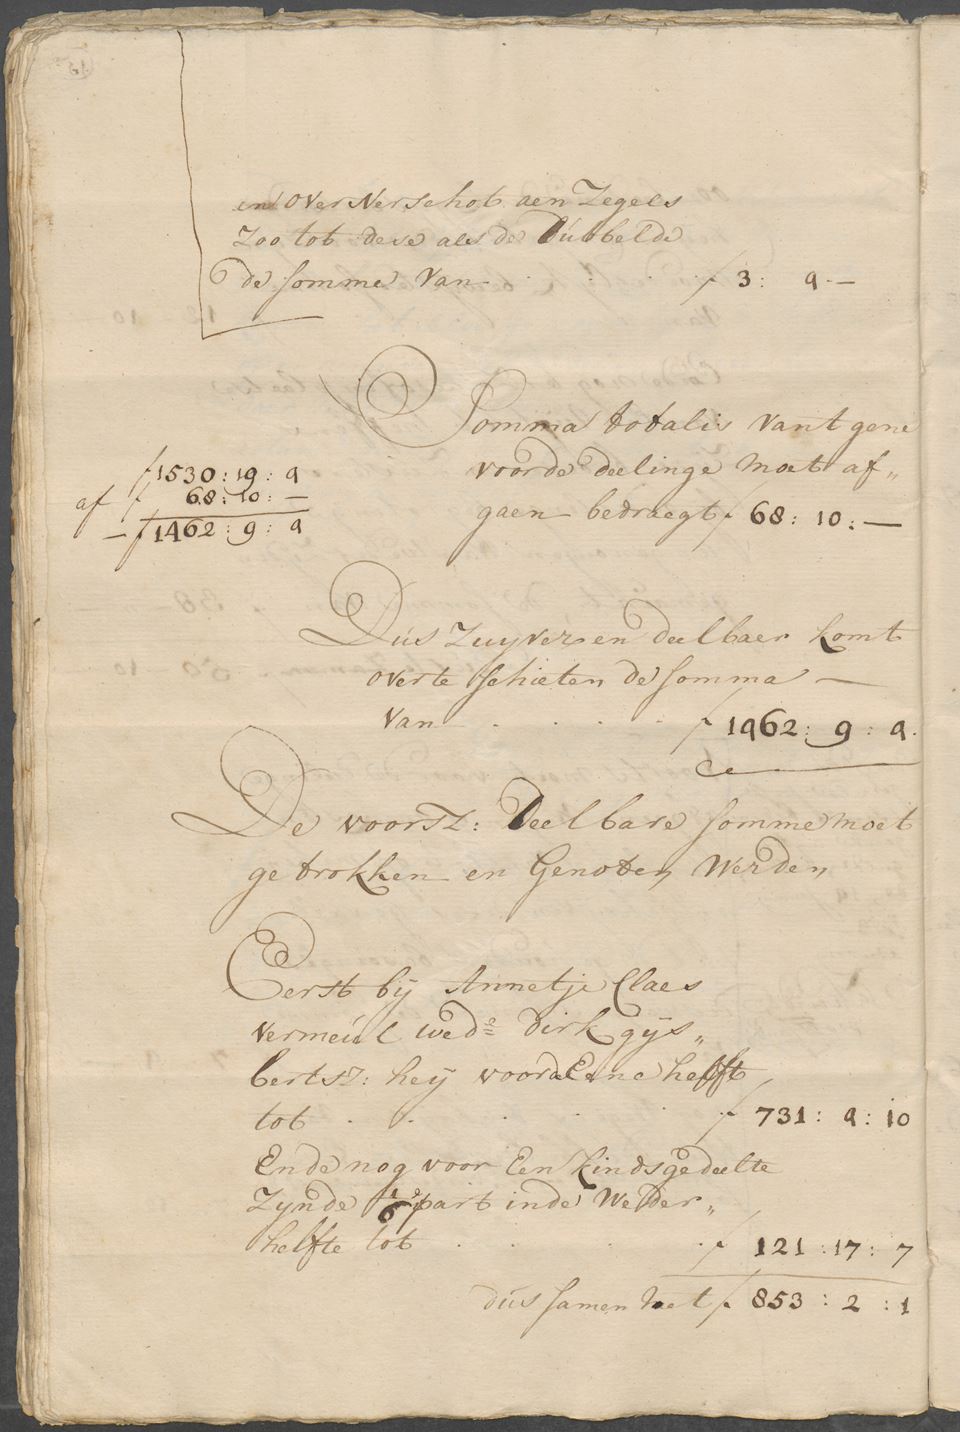 en over verschot aen Zegels
Zoo tot dese als de Dubbelde
de somme van . . . f 3: 4 . —
Somma totalis van t gene
voorde deelinge moet af„
gaen bedraegt f 68: 10: —
f 1530 : 19 : 4
af f 68 : 10 : —
— f 1462 : 9 : 4
Dus Zuyver en deelbaer komt
over te schieten de somma —
van . . . . f 1462 : 9 : 4.
De voorsz: Deelbare somme moet
getrokken en Genoten Werden
Eerst bij Annetje Claes
Vermeul wede dirk gijs„
bertsz: heij voor de Eene helfft
tot . . . . . f 731 : 4 : 10
Ende nog voor Een kindsgedeelte
Zynde 1/6e part inde Weder„
helfte tot . . . . f 121 : 17 : 7
dus samen met f 853 : 2 : 1